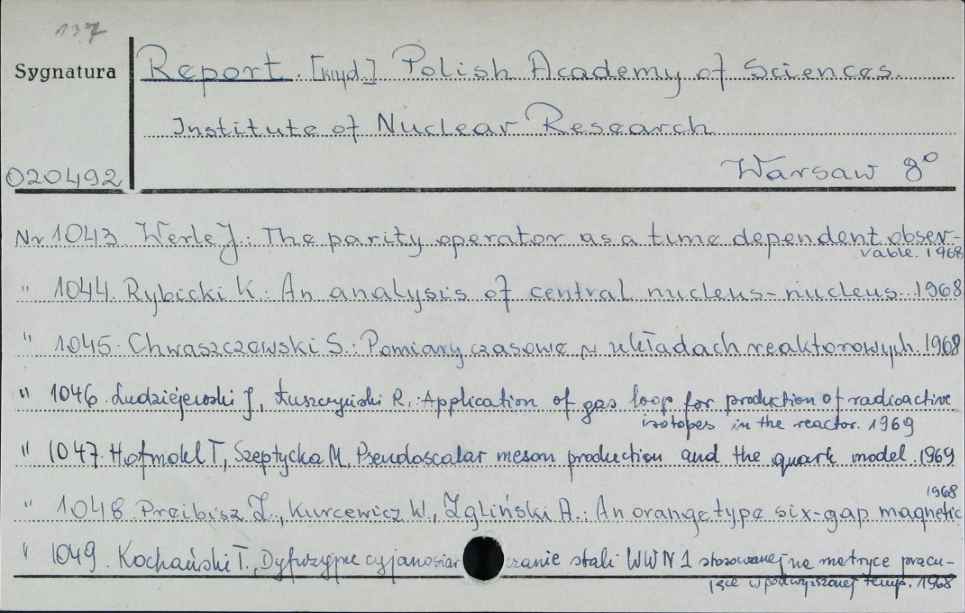 137
Sygnatura
Report. [wyd.] Polish Academy of Sciences.
Institute of Nuclear Research
020492
Warsaw 8°
Nr 1043 Werle J.: The parity operator as a time dependent obser-
vable. 1968
" 1044. Rybicki K.: An analysis of central nucleus-nucleus. 1968
" 1045. Chwaszczewski S.: Pomiary czasowe w układach reaktorowych. 1968
" 1046. Ludziejewski J., Łuszczyński R.: Application of gas loop for production of radioactive
izotopes in the reactor. 1969
" 1047. Hofmokl T., Szeptycka M. Pseudoscalar meson production and the quark model. 1969
" 1048. Preibisz Z., Kurcewicz W., Żgliński A.: An orange type six-gap magnetic
1968
" 1049. Kochański T., Dyfuzyjne cyjanosiar czanie stali WWN1 stosowanej na matryce pracu-
jące w podwyższonej temp. 1968